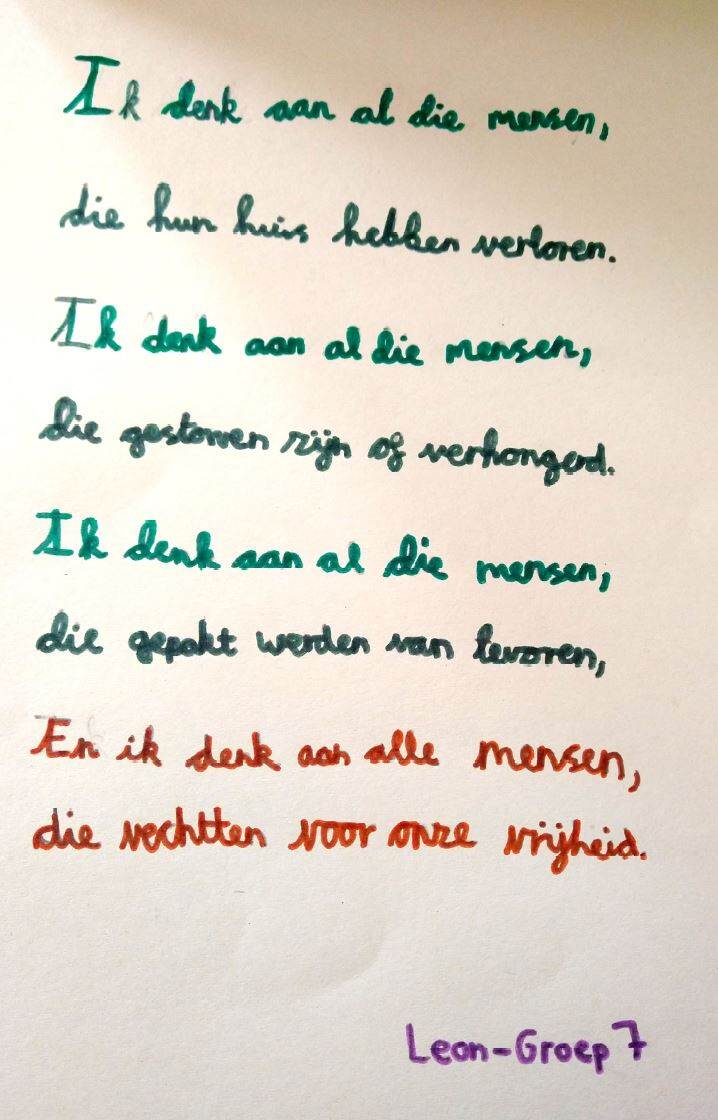 Ik denk aan al die mensen,
die hun huis hebben verloren.
Ik denk aan al die mensen,
die gestorven zijn of verhongerd.
Ik denk aan al die mensen,
die gepakt werden van tevoren,
En ik denk aan alle mensen,
die vechtten voor onze vrijheid.
Leon-Groep 7